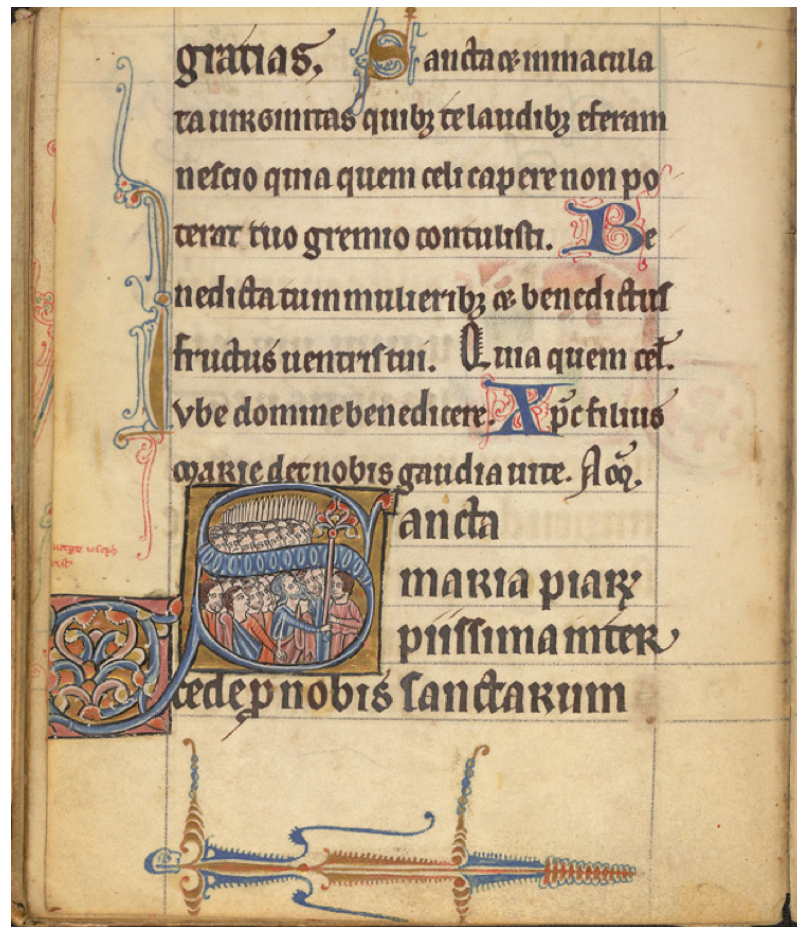 gratias. Sancta & inmacula
ta uirginitas quibꝫ te laudibꝫ eferam
nescio quia quem celi capere non po
terat tuo gremio contulisti. Be
nedicta tu in mulieribꝫ & benedictus
fructus uentris tui. Quia quem cel̄.
Iube domine benedicere. Xp̄c filius
marie det nobis gaudia uite. Am̄.
Sancta
maria piaꝝ
piissima inter
cede ꝓ nobis sanctarum